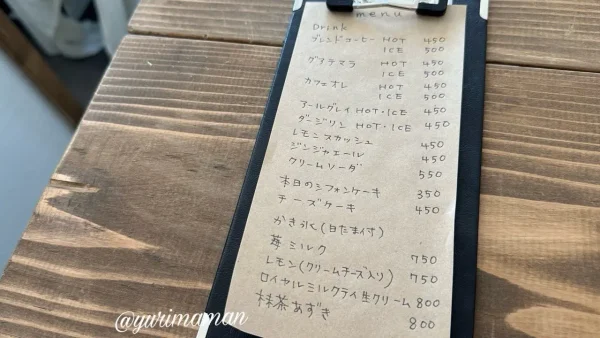 menu
Drink
ブレンドコーヒー HOT 450
ICE 500
グァテマラ HOT 450
ICE 500
カフェオレ HOT 450
ICE 500
アールグレイ HOT・ICE 450
ダージリン HOT・ICE 450
レモンスカッシュ 450
ジンジャエール 450
クリームソーダ 550
本日のシフォンケーキ 350
チーズケーキ 450
かき氷(白たま付)
苺ミルク 750
レモン(クリームチーズ入り) 750
ロイヤルミルクティ生クリーム 800
抹茶あずき 800
@yurimaman